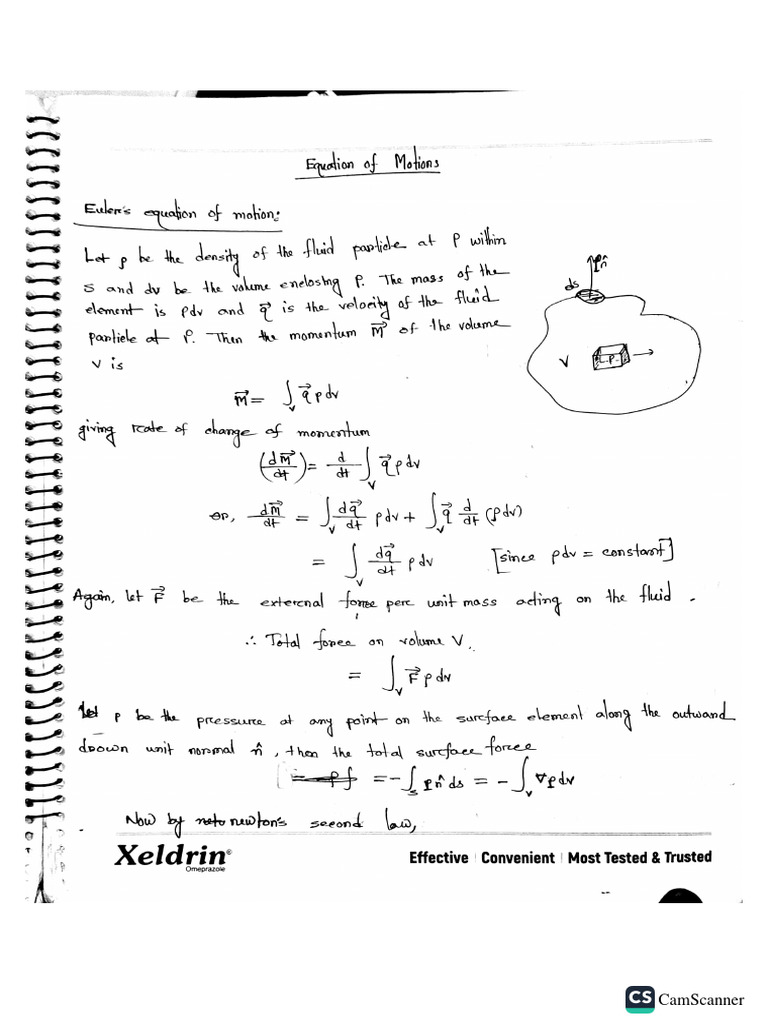 Equation of Motions
Euler's equation of motion:
Let ρ be the density of the fluid particle at P within
S and dv be the volume enclosing P. The mass of the
element is ρdv and q⃗ is the velocity of the fluid
particle at P. Then the momentum M⃗ of the volume
V is
ds
Pn̂
V
P.
M⃗ = ∫_V q⃗ ρdv
giving rate of change of momentum
(dM⃗/dt) = d/dt ∫_V q⃗ ρdv
or, dM⃗/dt = ∫_V dq⃗/dt ρdv + ∫_V q⃗ d/dt (ρdv)
= ∫_V dq⃗/dt ρdv [since ρdv = constant]
Again, let F⃗ be the external force per unit mass acting on the fluid.
∴ Total force on volume V,
= ∫_V F⃗ ρdv
Let p be the pressure at any point on the surface element along the outward
drown unit normal n̂, then the total surface force
= -∫_S Pn̂ ds = -∫_V ∇P dv
Now by newton's second law,
Xeldrin®
Omeprazole
Effective | Convenient | Most Tested & Trusted
CS CamScanner